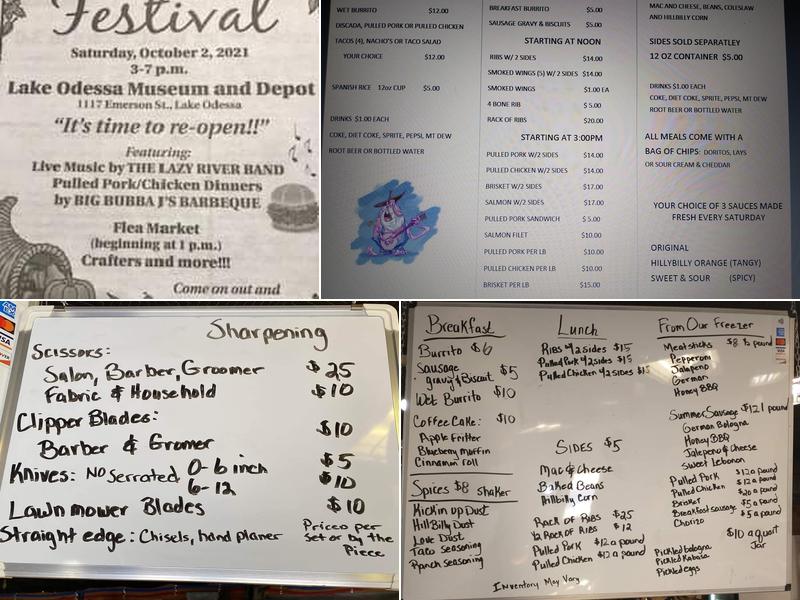 Festival
Saturday, October 2, 2021
3-7 p.m.
Lake Odessa Museum and Depot
1117 Emerson St., Lake Odessa
"It's time to re-open!!"
Featuring:
Live Music by THE LAZY RIVER BAND
Pulled Pork/Chicken Dinners
by BIG BUBBA J'S BARBEQUE
Flea Market
(beginning at 1 p.m.)
Crafters and more!!!
Come on out and
WET BURRITO $12.00
DISCADA, PULLED PORK OR PULLED CHICKEN
TACOS (4), NACHO'S OR TACO SALAD
YOUR CHOICE $12.00
SPANISH RICE 12oz CUP $5.00
DRINKS $1.00 EACH
COKE, DIET COKE, SPRITE, PEPSI, MT DEW
ROOT BEER OR BOTTLED WATER
BREAKFAST BURRITO $5.00
SAUSAGE GRAVY & BISCUITS $5.00
STARTING AT NOON
RIBS W/2 SIDES $14.00
SMOKED WINGS (5) W/2 SIDES $14.00
SMOKED WINGS $1.00 EA
4 BONE RIB $ 5.00
RACK OF RIBS $20.00
STARTING AT 3:00PM
PULLED PORK W/2 SIDES $14.00
PULLED CHICKEN W/2 SIDES $14.00
BRISKET W/2 SIDES $17.00
SALMON W/2 SIDES $17.00
PULLED PORK SANDWICH $ 5.00
SALMON FILET $10.00
PULLED PORK PER LB $10.00
PULLED CHICKEN PER LB $10.00
BRISKET PER LB $15.00
MAC AND CHEESE, BEANS, COLESLAW
AND HILLBILLY CORN
SIDES SOLD SEPARATLEY
12 OZ CONTAINER $5.00
DRINKS $1.00 EACH
COKE, DIET COKE, SPRITE, PEPSI, MT DEW
ROOT BEER OR BOTTLED WATER
ALL MEALS COME WITH A
BAG OF CHIPS: DORITOS, LAYS
OR SOUR CREAM & CHEDDAR
YOUR CHOICE OF 3 SAUCES MADE
FRESH EVERY SATURDAY
ORIGINAL
HILLYBILLY ORANGE (TANGY)
SWEET & SOUR (SPICY)
Sharpening
Scissors:
Salon, Barber, Groomer $25
Fabric & Household $10
Clipper Blades:
Barber & Gromer $10
Knives: No Serrated 0-6 inch $5
6-12 $10
Lawn mower Blades $10
Straight edge: Chisels, hand planer
Priced per
Set or by the
Piece
Breakfast
Burrito $6
Sausage
gravy & Biscuit $5
Wet Burrito $10
Coffee Cake: $10
Apple Fritter
Blueberry muffin
Cinnamon roll
Spices $8 shaker
Kickin up Dust
HillBilly Dust
Love Dust
Taco seasoning
Ranch seasoning
Lunch
Ribs w/2 sides $15
Pulled Pork w/2 sides $15
Pulled Chicken w/2 sides $15
SIDES $5
Mac & Cheese
Baked Beans
Hillbilly Corn
Rack of Ribs $25
1/2 Rack of Ribs $12
Pulled Pork $12 a pound
Pulled Chicken $12 a pound
Inventory May Vary
From Our Freezer
Meat sticks $8 1/2 pound
Pepperoni
Jalapeno
German
Honey BBQ
Summer Sausage $12 1 pound
German Bologna
Honey BBQ
Jalepeno & Cheese
Sweet Lebonon
Pulled Pork $12 a pound
Pulled Chicken $12 a pound
Brisket $20 a pound
Breakfast sausage $5 a pound
Chorizo $5 a pound
$10 a quart
Jar
Pickled bologna
Pickled Kabasa
Pickled eggs